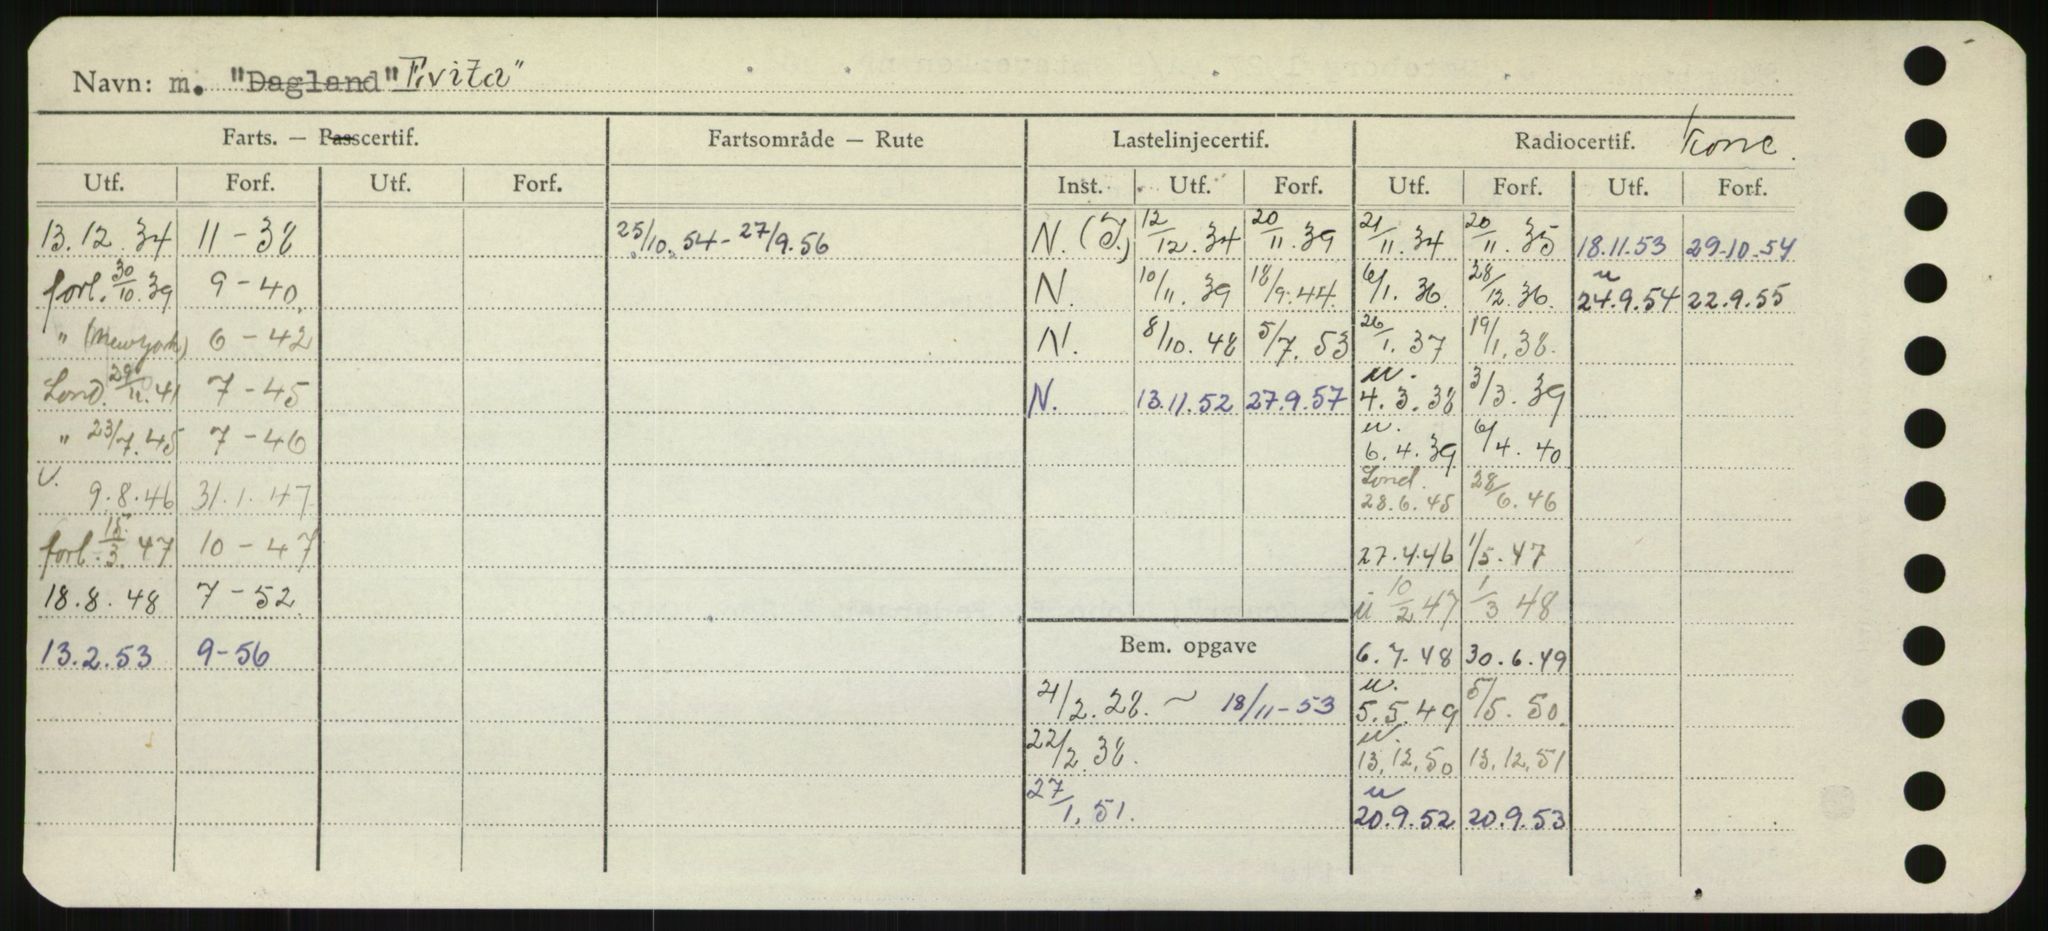 Navn: m. "Dagland" "Evita"
Farts. — Passcertif. Fartsområde — Rute Lastelinjecertif. Radiocertif.
Utf. Forf. Utf. Forf. Inst. Utf. Forf. Utf. Forf. Utf. Forf.
13.12.34 11-38 25/10.54-27/9.56 N. (I.) 12/12.34 20/11.39 21/11.34 20/11.35 18.11.53 29.10.54
forl. 30/10.39 9-40 N. 10/11.39 18/9.44 6/1.36 28/12.36 u 24.9.54 22.9.55
" (New York) 6-42 N. 8/10.48 5/7.53 26/1.37 19/1.38.
Lond. 29/11.41 7-45 N. 13.11.52 27.9.57 u. 4.3.38 3/3.39
" 23/7.45 7-46 u. 6.4.39 6/4.40
v. 9.8.46 31.1.47 Lond. 28.6.45 28/6.46
forl. 15/3.47 10-47 27.4.46 1/5.47
18.8.48 7-52 u 10/2 47 1/3 48
13.2.53 9-56 Bem. opgave 6.7.48 30.6.49
21/2.28. ~ 18/11-53 u. 5.5.49 5/5.50
22/2.38. u. 13.12.50 13.12.51
27/1.51. u 20.9.52 20.9.53